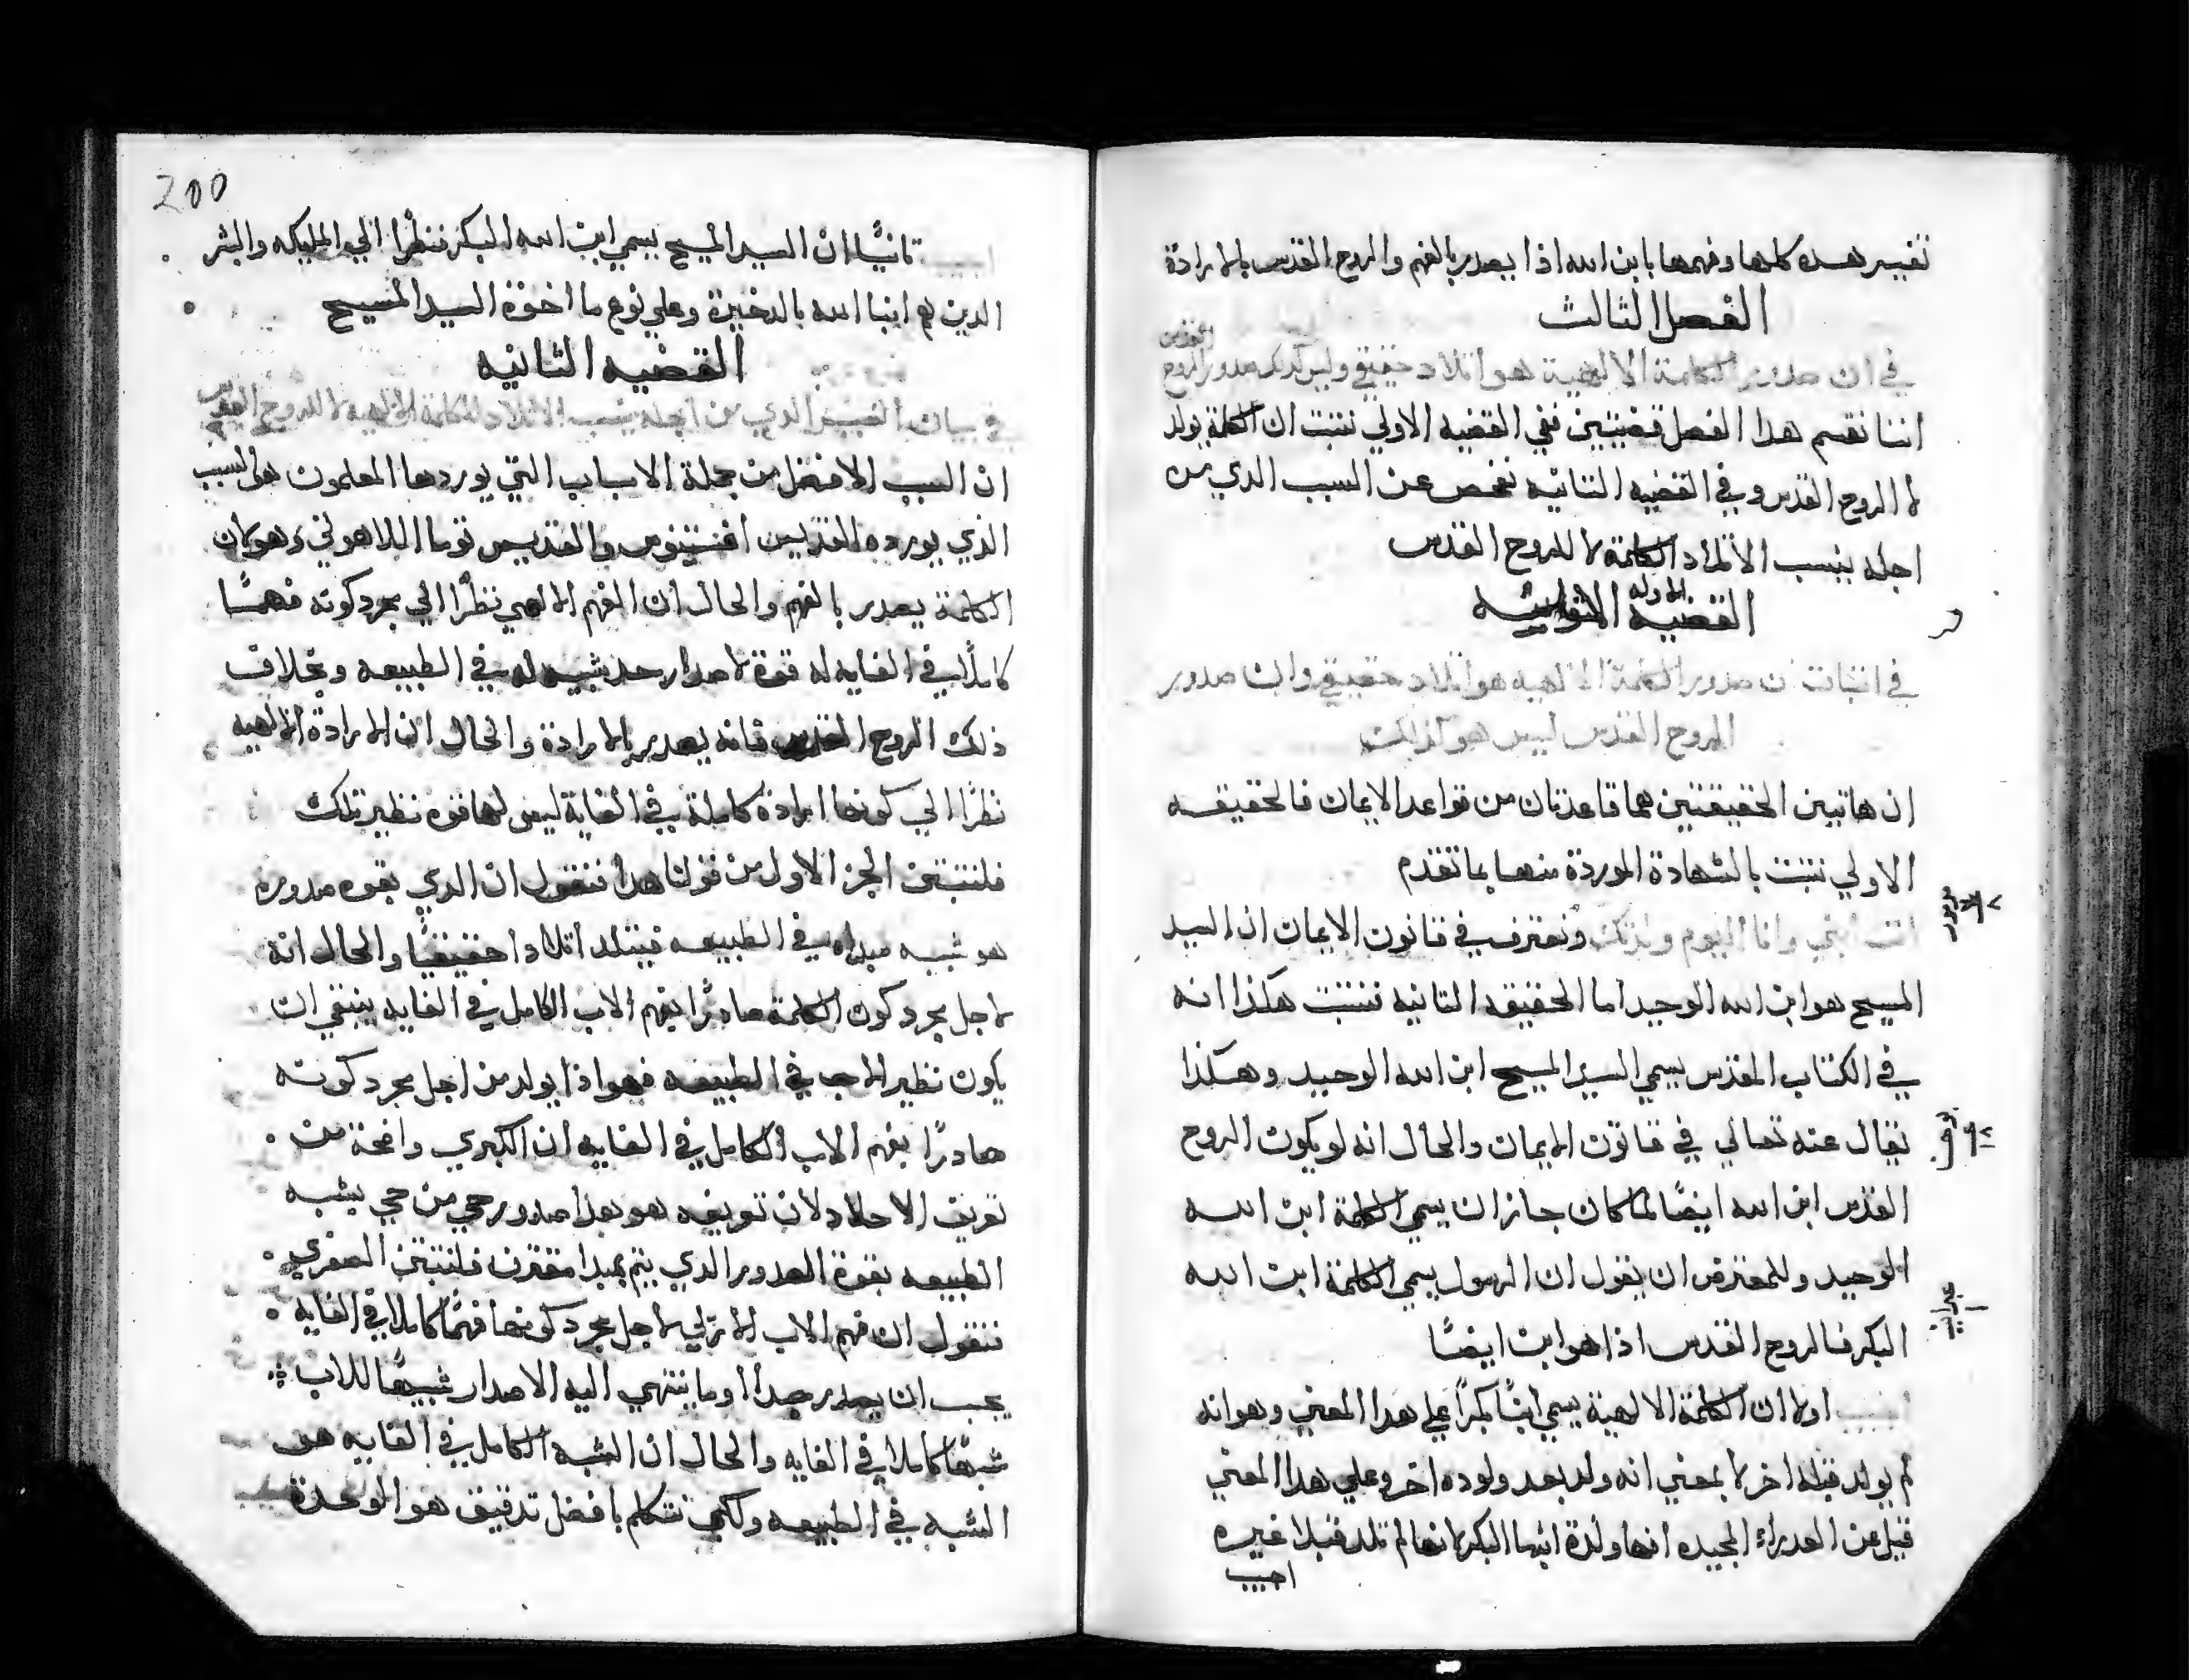 تفسير هده كلها وفهمها بابن الله اذا يصدر بالفهم والروح القدس بالارادة
الفصل الثالث
في ان صدور الكلمة الالهية هو اتلاد حقيقي وليس كدلك صدور الروح
القدس
اننا نقسم هدا الفصل قضيتين ففي القضيه الاولي نتبت ان الكلمة يولد
لا الروح القدس وفي القضيه التانيه نفحص عن السبب الدي من
اجله ينسب الاتلاد للكلمة لا للروح القدس
القضيه الاوله
في اتبات ان صدور الكلمة الالهيه هو اتلاد حقيقي وان صدور
الروح القدس ليس هو كذلك
ان هاتين الحقيقتين هما قاعدتان من قواعد الايمان فالحقيقه
الاولي تتبت بالشهادة الموردة منها بما تقدم
مزمور
انت ابني وانا اليوم ولدتك ونعترف في قانون الايمان ان السيد
المسيح هو ابن الله الوحيد اما الحقيقه التانيه فتتبت هكذا انه
في الكتاب المقدس يسمي السيد المسيح ابن الله الوحيد وهكذا
يقال عنه تعالي في قانون الايمان والحال انه لو يكون الروح
القدس ابن الله ايضًا لما كان جاز ان يسمي الكلمة ابن الله
الوحيد وللمعترض ان يقول ان الرسول يسمي الكلمة ابن الله
البكر فالروح القدس اذا هو ابن ايضًا
اجيب اولا ان الكلمة الالهية يسمي ابنًا بكرًا علي هدا المعني وهو انه
لم يولد قبله اخر لا بمعني انه ولد بعد ولوده اخر وعلي هدا المعني
قيل عن العدراء المجيده انها ولدة ابنها البكر لانها لم تلد قبلا غيره
اجيب
200
اجيب تانيًا ان السيد المسيح يسمي ابن الله البكر نظرًا الي المليكه والبشر
الدين هم ابنا الله بالدخيرة وعلي نوع ما اخوة السيد المسيح
القضيه الثانيه
في بيان السبب الدي من اجله ينسب الاتلاد للكلمة الالهيه لا للروح القدس
ان السبب الافضل من جملة الاسباب التي يوردها المعلمون هو السبب
الذي يورده القديسين اغستينوس والقديس توما اللاهوتي وهو ان
الكلمة يصدر بالفهم والحال ان الفهم الالهي نظرًا الي مجرد كونه فهمًا
كاملًا في الغايه له قوة لاصدار حد شبيه له في الطبيعه وبخلاف
ذلك الروح القدس فانه يصدر بالارادة والحال ان الارادة الالهيه
نظرًا الي كونها ارادة كاملة في الغاية ليس لها قوه نظير تلك
فلنتبتن الجز الاول من قولنا هدا فنقول ان الدي بقوه صدوره
هو شبيه مبداه في الطبيعه فيتلد اتلادا حقيقيًا والحال انه
لاجل مجرد كون الكلمة صادرًا بفهم الاب الكامل في الغايه ينبغي ان
يكون نظير الاب في الطبيعه فهو اذا يولد من اجل مجرد كونه
صادرًا بفهم الاب الكامل في الغايه ان الكبري واضحة من
تعريف الاتلاد لان تعريفه هو هدا صدور حي من حي يشبه
الطبيعه بقوة الصدور الدي يتم بمبدا مقترن فلنتبتن الصغري
فنقول ان فهم الاب الازلي لاجل مجرد كونها فهمًا كاملا في الغايه
يجب ان يصدر حدا او ما ينتهي اليه الاصدار شبيهًا للاب
شبهًا كاملا في الغايه والحال ان الشبه الكامل في الغايه هو
الشبه في الطبيعه ولكي نتكلم بافضل تدقيق هو الوحدة